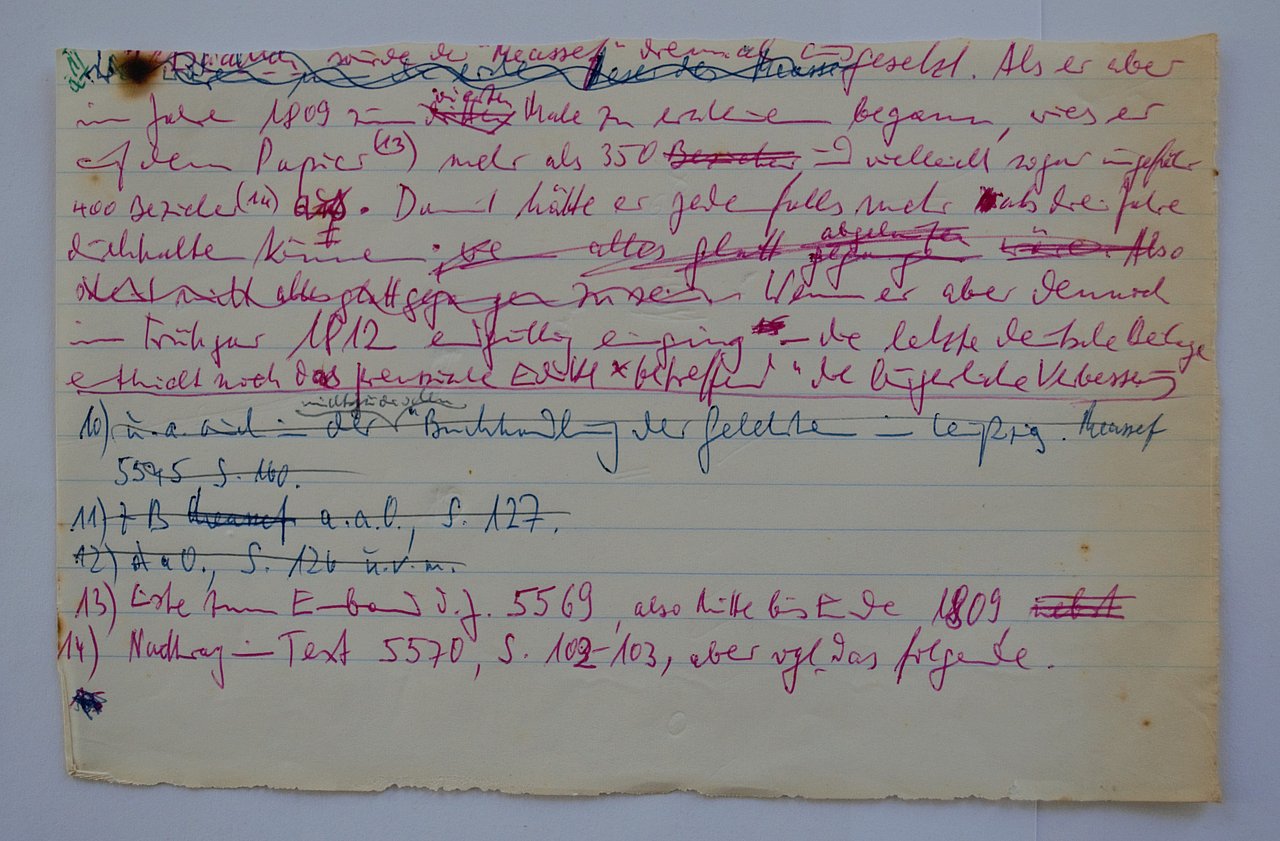 wurde der "Meassef" dreimal gesetzt. Als er aber
im Jahre 1809 zum vierten Male zu erscheinen begann, wies er
auf dem Papier (13) mehr als 350 Bezieher und vielleicht sogar ungefähr
400 Bezieher (14) auf. Damit hätte er jedenfalls mehr als drei Jahre
durchhalten können, alles glatt abgelaufen gegangen wäre. Also
scheint nicht alles glatt gegangen zu sein. Wenn er aber dennoch
im Frühjar 1812 endgültig einging - die letzte deutsche Beilage
enthielt noch das preussische Edikt betreffend "die bürgerliche Verbesserung
10) u. a. auch in der "Buchhandlung der Gelehrten in Leipzig. Meassef
5545 S. 160.
11) z B Meassef a.a.O., S. 127.
12) A a O., S. 126 u.v.m.
13) Liste zum Einband d. J. 5569, also Mitte bis Ende 1809 nebst
14) Nachtrag im Text 5570, S. 102-103, aber vgl. das folgende.